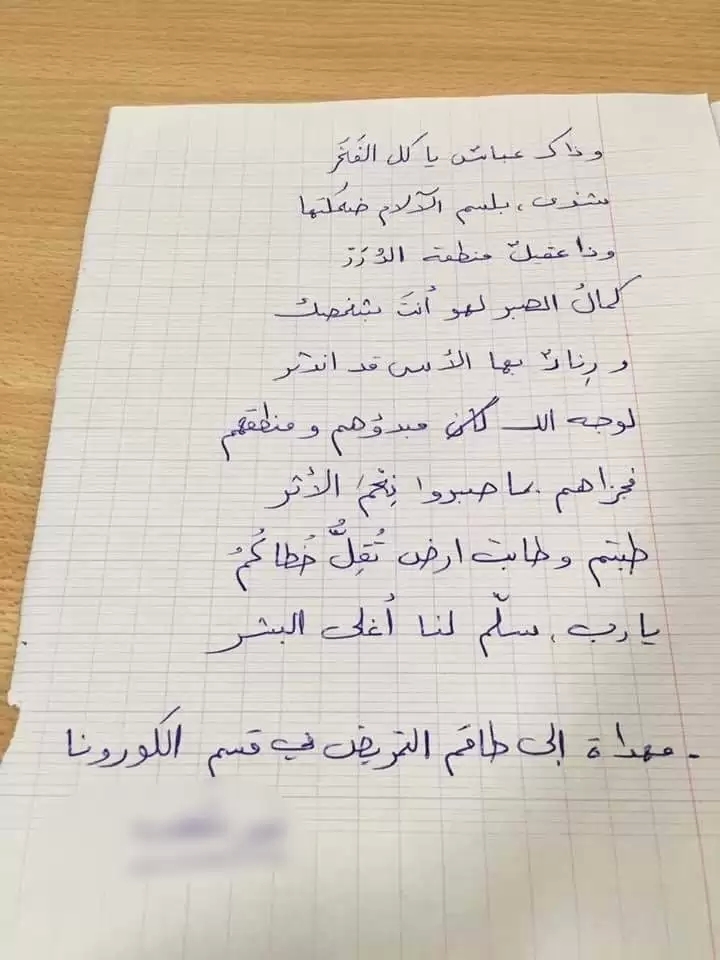 وذاك عباسٌ يا كل الفَخَر
شذى، بلسم الآلام ضحكتها
وذا عقيلٌ منطقه الدُرَرْ
كمالُ الصبر لهو أنتَ بشخصك
و رِنادٌ بها الأسى قد اندثر
لوجه الله كان مبدؤهم ومنطقهم
فجزاهم بما صبروا نِعْمَ الأثر
طبتم وطابت ارض تُقِلُّ خُطاكُمُ
يارب، سلّم لنا أغلى البشر
- مهداة إلى طاقم التمريض في قسم الكورونا